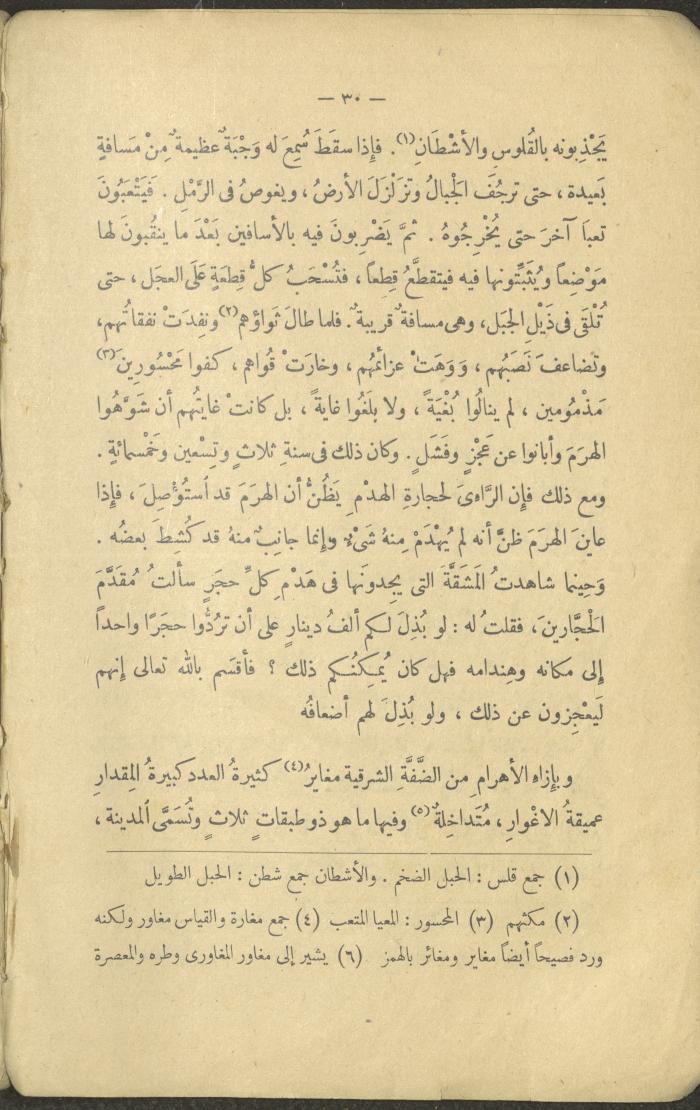 — ٣٠ —
يَجْذِبونه بالقُلوسِ والأشْطَانِ(١). فإذا سقَطَ سُمِعَ له وَجْبَةٌ عظيمةٌ مِنْ مَسافةٍ
بَعيدة ، حتى ترجُفَ الْجبالُ وتزَلْزَلَ الأرضُ ، ويغوصُ فى الرَّمْلِ . فَيَتْعَبُونَ
تعبًا آخرَ حتى يُخْرِجُوهُ . ثمَّ يَضْرِبونَ فيه بالأسافين بَعْدَ ما ينقُبونَ لها
مَوْضِعاً ويُثَبِّتونها فيه فيتقطَّعُ قِطعاً ، فتُسْحَبُ كلُّ قِطعَةٍ عَلَى العجَل ، حتى
تُلْقَى فى ذَيْلِ الجَبَل، وهى مسافةٌ قريبةٌ. فلما طالَ ثَواؤهم(٢) ونفِدَتْ نفقاتُهم،
وتضاعفَ نَصَبُهم ، وَوَهَتْ عزائمُهم ، وخارَتْ قُواهم ، كفوا مَحْسُورِينَ(٣)
مَذْمُومين ، لم ينالُوا بُغْيَةً ، ولا بلَغُوا غايةً ، بل كانتْ غايتُهم أن شَوَّهُوا
الهرَمَ وأبانوا عن عَجْزٍ وفَشَلٍ . وكان ذلك فى سنةِ ثلاثٍ وتِسْعين وخَمْسمائةٍ .
ومع ذلك فإن الرَّاءىَ لحجارةِ الهدْمِ يَظُنُّ أن الهرَمَ قد اُستُؤْصِلَ ، فإذا
عاينَ الهرَمَ ظنَّ أنه لم يُهْدَمْ مِنهُ شَىْءٌ وإنما جانِبٌ منهُ قد كُشِطَ بعضُه .
وَحِينما شاهدتُ المَشَقَّةَ التى يجِدونَها فى هَدْمِ كلِّ حجَرٍ سألتُ مُقَدَّمَ
الْحجَّارينَ، فقلتُ له : لو بُذِلَ لكم ألفُ دينارٍ على أن ترُدُّوا حجَرًا واحداً
إلى مكانه وهِندامه فهل كان يُمكِنُكم ذلك ؟ فأقسَم بالله تعالى إنهم
لَيعْجِزون عن ذلك ، ولو بُذِلَ لهم أضعافُه
وبإزاءِ الأهرامِ من الضَّفَّةِ الشرقية مغايرُ(٤) كثيرةُ العدد كبيرةُ المِقدارِ
عميقةُ الاغْوارِ ، مُتَداخِلةٌ(٥) وفيها ما هو ذو طبقاتٍ ثلاثٍ وتُسَمَّى المدينة ،
(١) جمع قلس : الحبل الضخم . والأشطان جمع شطن : الحبل الطويل
(٢) مكثهم (٣) المحسور : المعيا المتعب (٤) جمع مغارة والقياس مغاور ولكنه
ورد فصيحاً أيضاً مغاير ومغائر بالهمز (٦) يشير إلى مغاور المغاورى وطره والمعصرة